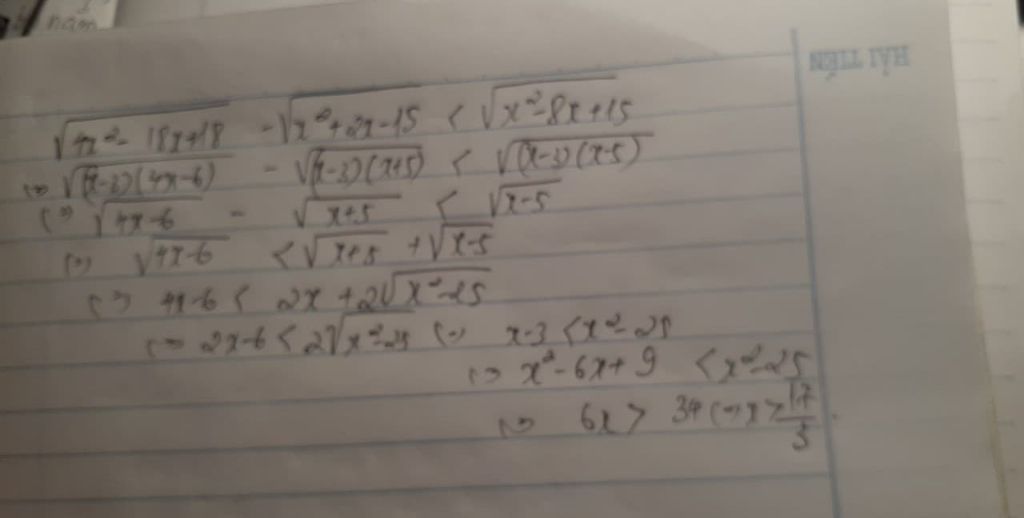 nam
HẢI TIẾN
√(4x²- 18x+18) -√(x²+2x-15) < √(x²-8x+15)
(=) √((x-3)(4x-6)) - √((x-3)(x+5)) < √((x-3)(x-5))
(=) √(4x-6) - √(x+5) < √(x-5)
(=) √(4x-6) < √(x+5) +√(x-5)
(=) 4x-6 < 2x +2√(x²-25)
(=) 2x-6 < 2√(x²-25) (=) x-3 <x²-25
(=) x²-6x+9 <x²-25
(=) 6x > 34 (=) x > 17/3